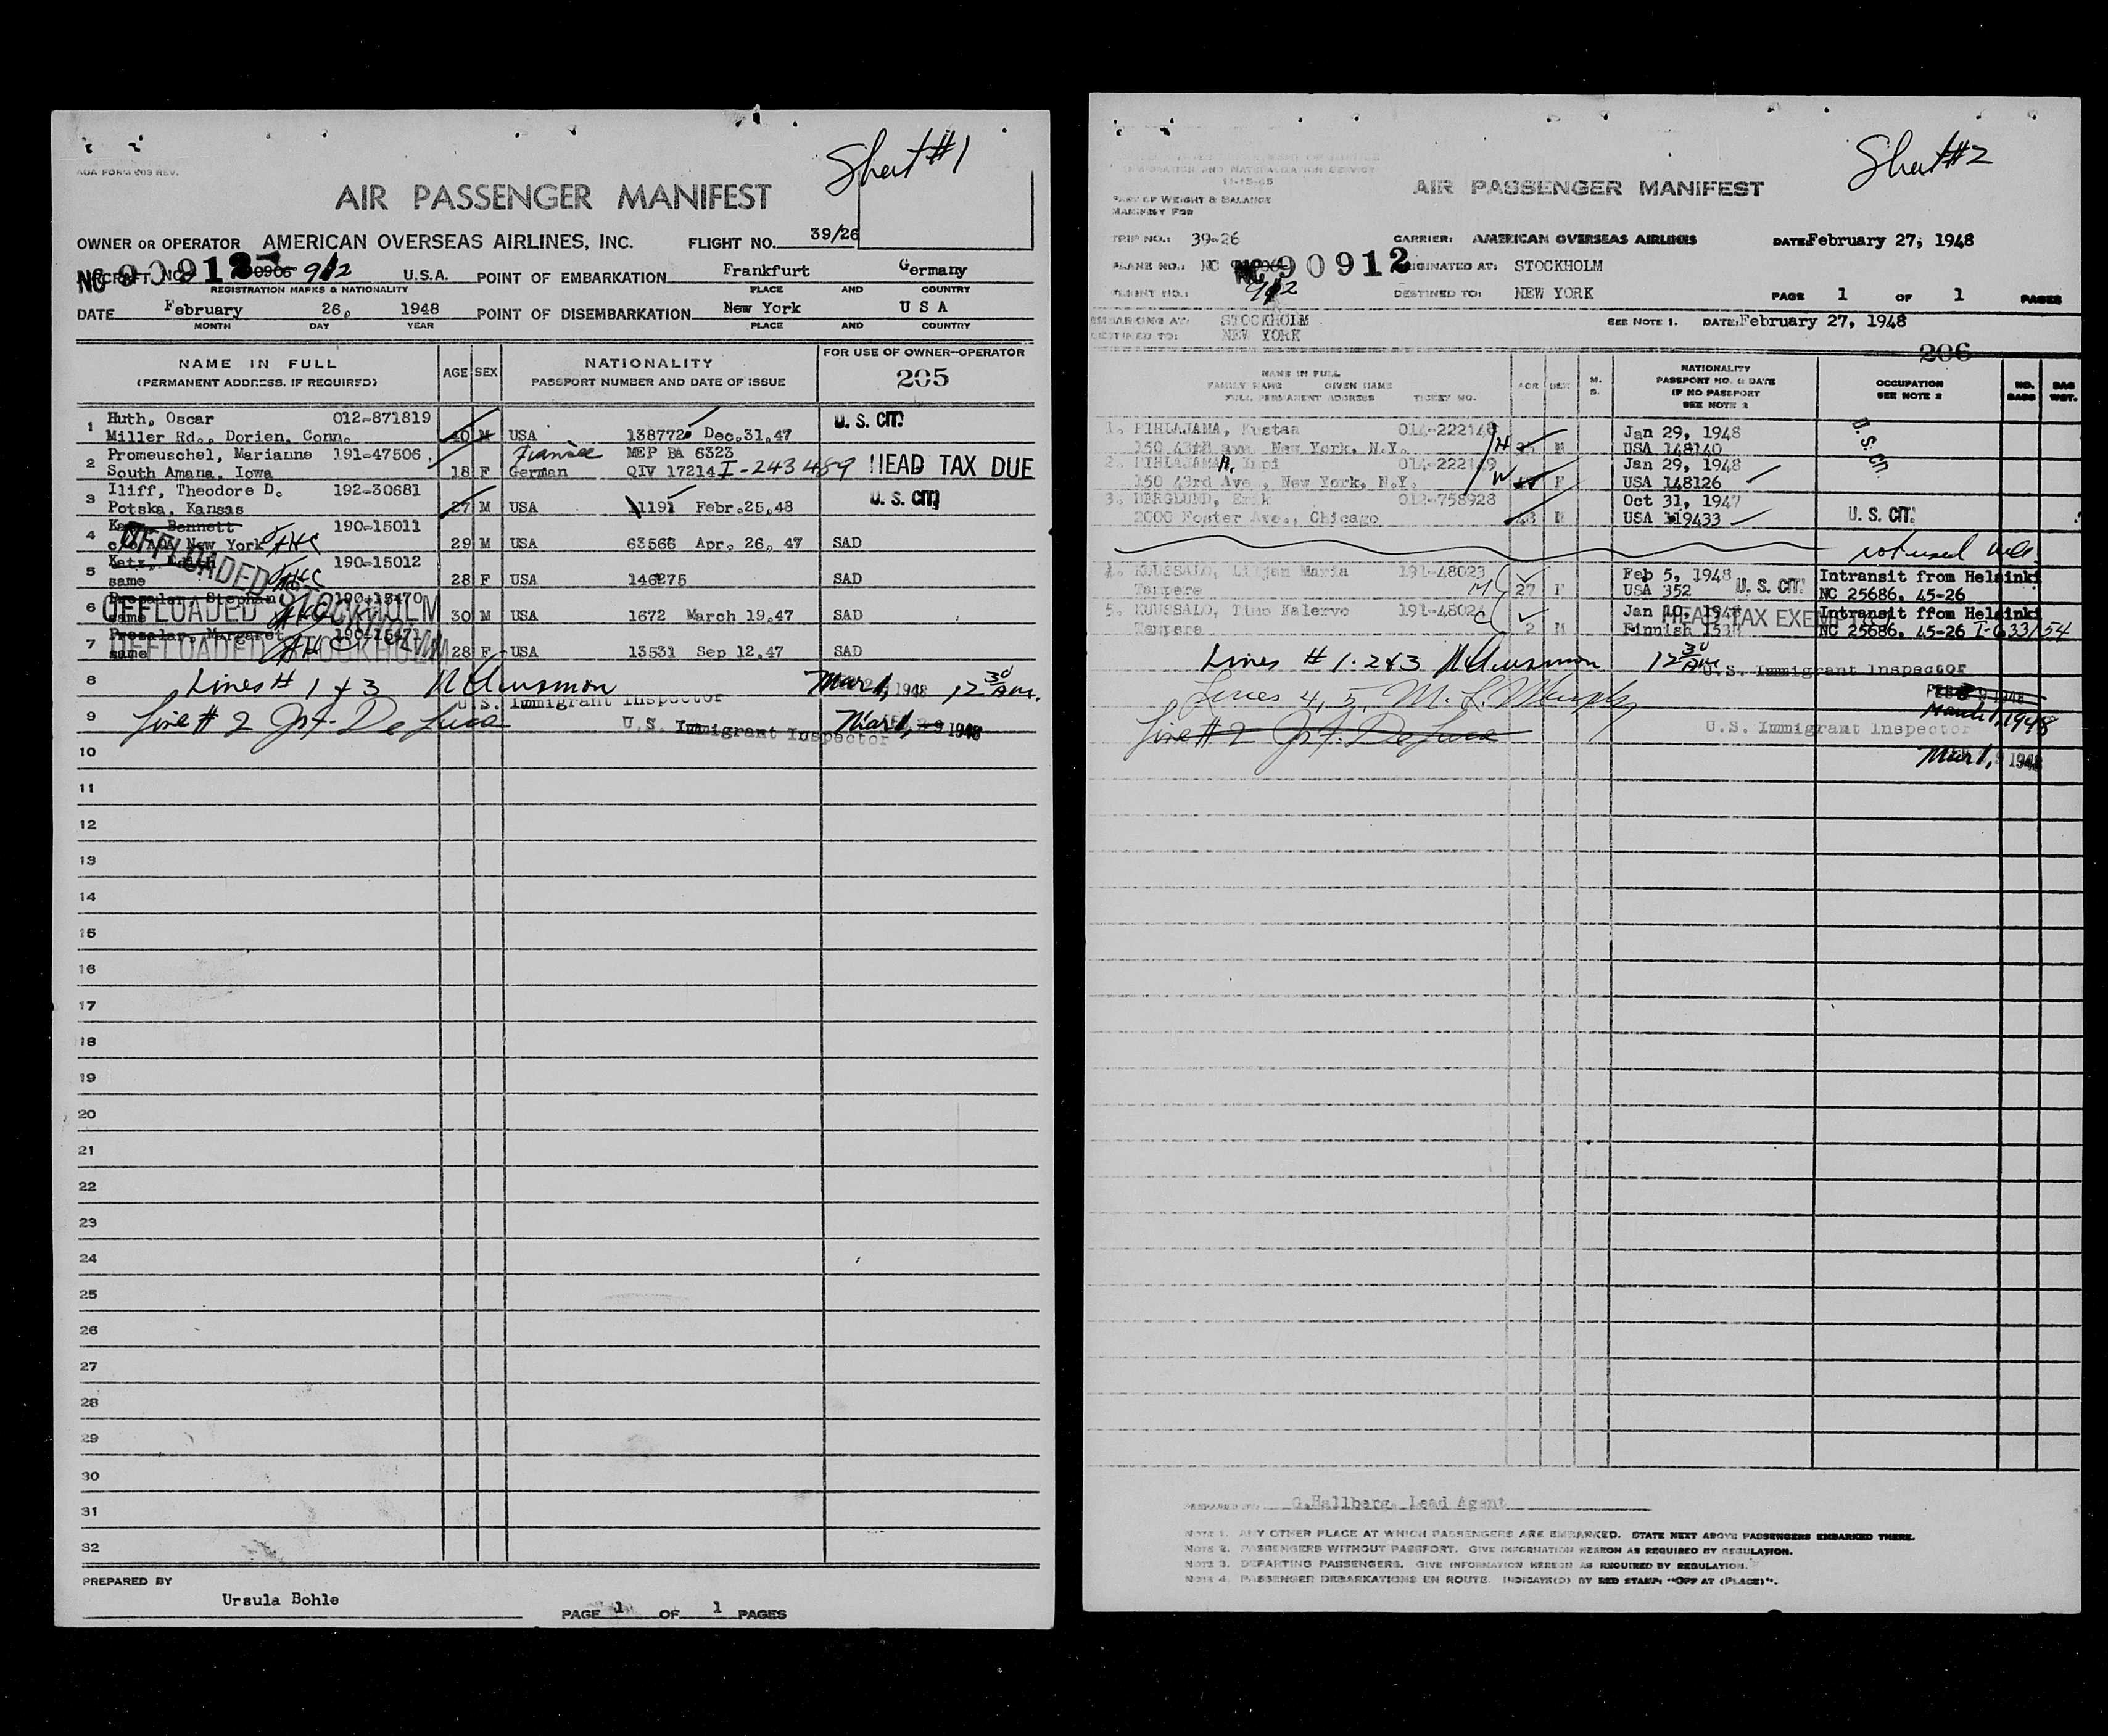 Sheet #1
AOA FORM 603 REV.
AIR PASSENGER MANIFEST
OWNER OR OPERATOR AMERICAN OVERSEAS AIRLINES, INC. FLIGHT NO. 39/26
NC 90912 90906 912 U.S.A. POINT OF EMBARKATION Frankfurt Germany
REGISTRATION MARKS & NATIONALITY PLACE AND COUNTRY
DATE February 26, 1948 POINT OF DISEMBARKATION New York U S A
MONTH DAY YEAR PLACE AND COUNTRY
NAME IN FULL
(PERMANENT ADDRESS, IF REQUIRED)
AGE SEX
NATIONALITY
PASSPORT NUMBER AND DATE OF ISSUE
FOR USE OF OWNER-OPERATOR
205
1 Huth, Oscar 012-871819
Miller Rd., Dorien, Conn. 40 M USA 138772 Dec.31.47 U. S. CIT.
2 Promeuschel, Marianne 191-47506 Fiancée MEP BA 6323
South Amana, Iowa 18 F German QIV 17214 I-243489 HEAD TAX DUE
3 Iliff, Theodore D. 192-30681 U. S. CIT.
Potska, Kansas 27 M USA 11191 Febr.25.48
4 Katz, Bennett 190-15011
c/o AOA New York 29 M USA 63566 Apr. 26, 47 SAD
5 Katz, Edith 190-15012
same 28 F USA 146275 SAD
6 Presalar, Stephan 190-15470
same 30 M USA 1672 March 19.47 SAD
7 Presalar, Margaret 190-15471
same 28 F USA 13531 Sep 12.47 SAD
OFFLOADED STOCKHOLM
OFFLOADED STOCKHOLM
OFFLOADED STOCKHOLM
8 Lines # 1 & 3 Mar 1, 1948 12 30 AM.
U.S. Immigrant Inspector
9 Line # 2 Jos. F. De Luca Mar 1, 1948
U.S. Immigrant Inspector
10
11
12
13
14
15
16
17
18
19
20
21
22
23
24
25
26
27
28
29
30
31
32
PREPARED BY
Ursula Bohle
PAGE 1 OF 1 PAGES
Sheet #2
IMMIGRATION AND NATURALIZATION SERVICE
11-15-45
AIR PASSENGER MANIFEST
PART OF WEIGHT & BALANCE
MANIFEST FOR
TRIP NO.: 39-26 CARRIER: AMERICAN OVERSEAS AIRLINES DATE: February 27, 1948
PLANE NO.: NC NC 90912 ORIGINATED AT: STOCKHOLM
912
FLIGHT NO.: DESTINED TO: NEW YORK PAGE 1 OF 1 PAGES
EMBARKING AT: STOCKHOLM SEE NOTE 1. DATE: February 27, 1948
DESTINED TO: NEW YORK
206
NAME IN FULL
FAMILY NAME GIVEN NAME
FULL PERMANENT ADDRESS TICKET NO.
AGE SEX M. S.
NATIONALITY
PASSPORT NO. & DATE
IF NO PASSPORT
SEE NOTE 2
OCCUPATION
SEE NOTE 2
NO. BAGS
BAG WGT.
1. PIHLAJAMA, Kustaa 014-222148 Jan 29, 1948
150 43th ave New York, N.Y. H M USA 148140 U. S. CIT.
2. PIHLAJAMA, Impi 014-222149 Jan 29, 1948
150 43rd Ave., New York, N.Y. W F USA 148126
3. BERGLUND, Erik 012-758928 Oct 31, 1947
2000 Foster Ave., Chicago 43 M USA 119433 U. S. CIT.
not used
4. KUUSSALO, Liljan Maria 191-48023 Feb 5, 1948 Intransit from Helsinki
Tampere M 27 F USA 352 U. S. CIT. NC 25686, 45-26
5. KUUSSALO, Timo Kalervo 191-48024 Jan 10, 1948 HEAD TAX EXEMPT Intransit ffom Helsinki
Tampere C 2 M Finnish 1538 NC 25686, 45-26 I-633154
Lines # 1-2&3 12 30 AM
U.S. Immigrant Inspector
Lines 4, 5, M. L. Murphy FEB 29 1948
March 1, 1948
Line # 2 Jos. F. De Luca
U.S. Immigrant Inspector
Mar 1, 1948
PREPARED BY: G.Hallberg, Lead Agent
NOTE 1. ANY OTHER PLACE AT WHICH PASSENGERS ARE EMBARKED. STATE NEXT ABOVE PASSENGERS EMBARKED THERE.
NOTE 2. PASSENGERS WITHOUT PASSPORT. GIVE INFORMATION HEREON AS REQUIRED BY REGULATION.
NOTE 3. DEPARTING PASSENGERS. GIVE INFORMATION HEREON AS REQUIRED BY REGULATION.
NOTE 4. PASSENGER DEBARKATIONS EN ROUTE. INDICATE(D) BY RED STAMP: "OFF AT (PLACE)".